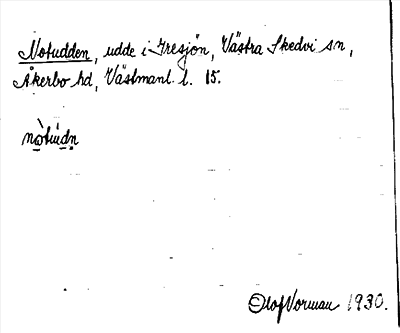 Notudden, udde i Iresjön, Västra Skedvi sn,
Åkerbo hd, Västmanl. l. 15.
nòtudn
Olof Vorman 1930.